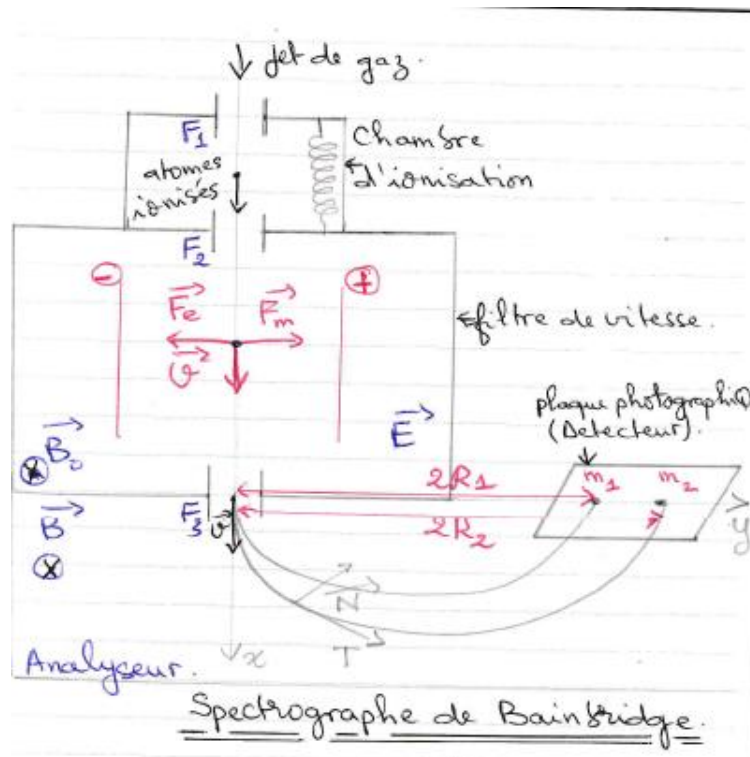 Jet de gaz.
F1
Chambre
d'ionisation
atomes
ionisés
F2
- +
Fe Fm
V
filtre de vitesse.
E
plaque photographiQ
(Detecteur).
B0
B
2R1
m1 m2
F3
v
2R2
y
N
T
x
Analyseur.
Spectrographe de Bainbridge.